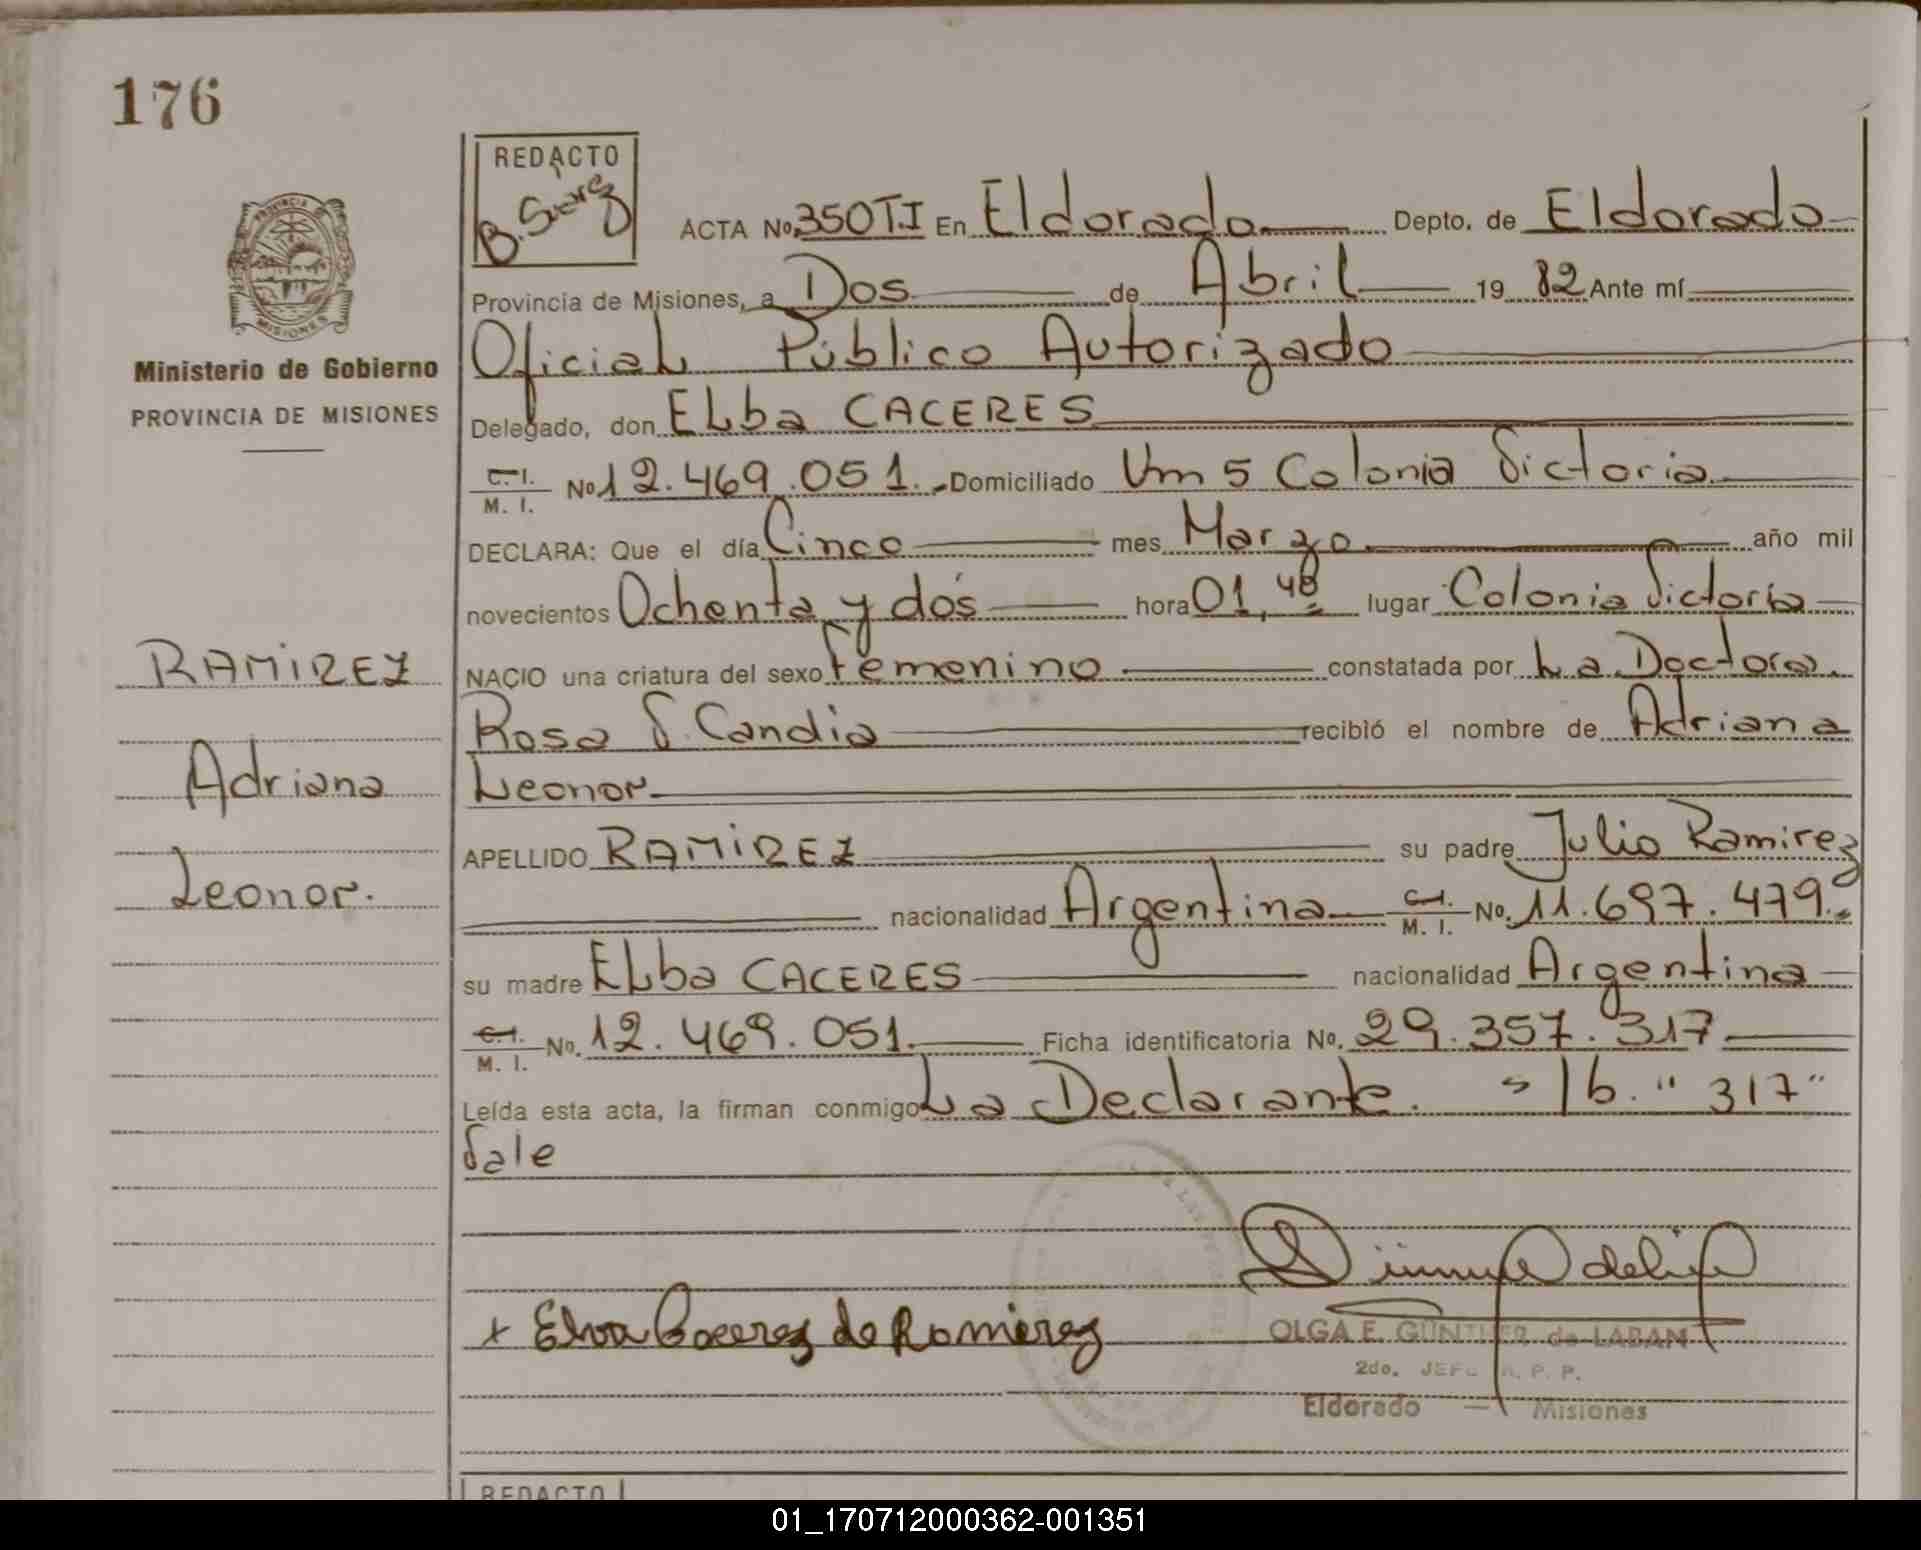 176
REDACTO
B. Suarez
ACTA No. 350TI En Eldorado Depto. de Eldorado
Provincia de Misiones, a Dos de Abril 19 82 Ante mí
Oficial Público Autorizado
Ministerio de Gobierno
PROVINCIA DE MISIONES
Delegado, don ELba CACERES
C.I. M. I. No 12.469.051. Domiciliado Km 5 Colonia Victoria
DECLARA: Que el día Cinco mes Marzo año mil
novecientos Ochenta y dós hora 01,48 lugar Colonia Victoria
RAMiREZ
NACIO una criatura del sexo femenino constatada por La Doctora
Rosa V. Candia recibió el nombre de Adriana
Adriana
Leonor
APELLIDO RAMiREZ su padre Julio Ramirez
Leonor.
nacionalidad Argentina C.I. M. I. No. 11.697.479.
su madre ELba CACERES nacionalidad Argentina
C.I. M. I. No. 12.469.051. Ficha identificatoria No. 29.357.317
Leída esta acta, la firman conmigo La Declarante. 16. "317"
Vale
x Elva Caceres de Ramirez
OLGA E. GÜNTHER de LABAN
2do. JEFE R. P. P.
Eldorado — Misiones
REDACTO
01_170712000362-001351